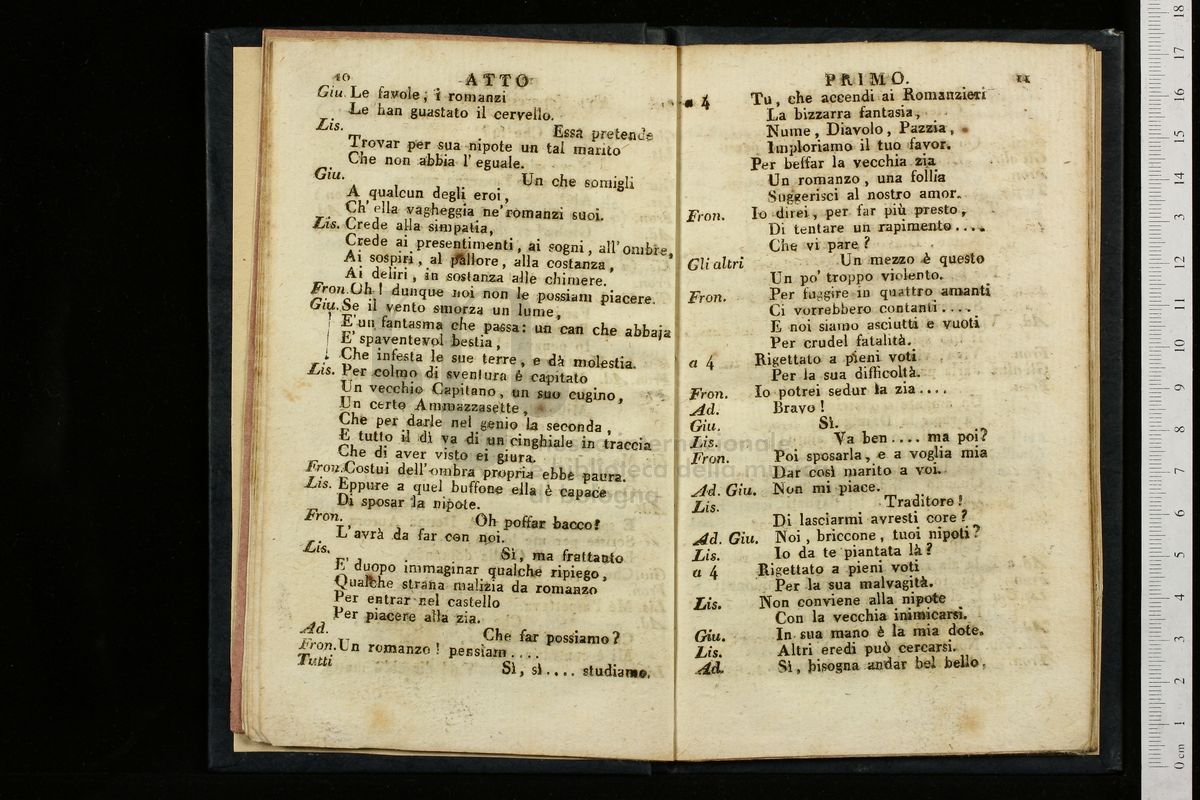 10 ATTO
Giu. Le favole, i romanzi
Le han guastato il cervello.
Lis. Essa pretende
Trovar per sua nipote un tal marito
Che non abbia l'eguale.
Giu. Un che somigli
A qualcun degli eroi,
Ch'ella vagheggia ne' romanzi suoi.
Lis. Crede alla simpatia,
Crede ai presentimenti, ai sogni, all'ombre,
Ai sospiri, al pallore, alla costanza,
Ai deliri, in sostanza alle chimere.
Fron. Oh! dunque noi non le possiam piacere.
Giu. Se il vento smorza un lume,
E' un fantasma che passa: un can che abbaja
E' spaventevol bestia,
Che infesta le sue terre, e dà molestia.
Lis. Per colmo di sventura è capitato
Un vecchio Capitano, un suo cugino,
Un certo Ammazzasette,
Che per darle nel genio la seconda,
E tutto il dì va di un cinghiale in traccia
Che di aver visto ei giura.
Fron. Costui dell'ombra propria ebbe paura.
Lis. Eppure a quel buffone ella è capace
Di sposar la nipote.
Fron. Oh poffar bacco!
L'avrà da far con noi.
Lis. Sì, ma frattanto
E' duopo immaginar qualche ripiego,
Qualche strana malizia da romanzo
Per entrar nel castello
Per piacere alla zia.
Ad. Che far possiamo?
Fron. Un romanzo! pensiam....
Tutti Sì, sì.... studiamo.
PRIMO. 11
a 4 Tu, che accendi ai Romanzieri
La bizzarra fantasia,
Nume, Diavolo, Pazzia,
Imploriamo il tuo favor.
Per beffar la vecchia zia
Un romanzo, una follia
Suggerisci al nostro amor.
Fron. Io direi, per far più presto,
Di tentare un rapimento....
Che vi pare?
Gli altri Un mezzo è questo
Un po' troppo violento.
Fron. Per fuggire in quattro amanti
Ci vorrebbero contanti....
E noi siamo asciutti e vuoti
Per crudel fatalità.
a 4 Rigettato a pieni voti
Per la sua difficoltà.
Fron. Io potrei sedur la zia....
Ad. Bravo!
Giu. Sì.
Lis. Va ben.... ma poi?
Fron. Poi sposarla, e a voglia mia
Dar così marito a voi.
Ad. Giu. Non mi piace.
Lis. Traditore!
Di lasciarmi avresti core?
Ad. Giu. Noi, briccone, tuoi nipoti?
Lis. Io da te piantata là?
a 4 Rigettato a pieni voti
Per la sua malvagità.
Lis. Non conviene alla nipote
Con la vecchia inimicarsi.
Giu. In sua mano è la mia dote.
Lis. Altri eredi può cercarsi.
Ad. Sì, bisogna andar bel bello,
internazionale
biblioteca della mu
di bologna
0 cm 1 2 3 4 5 6 7 8 9 10 11 12 13 14 15 16 17 18